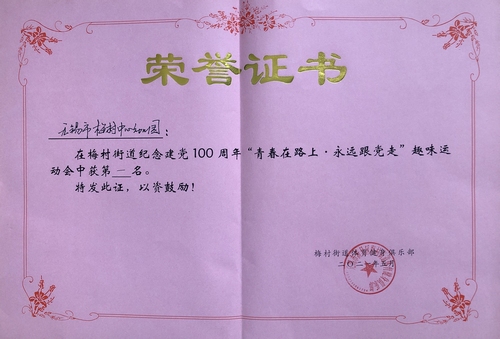 荣誉证书
无锡市梅村中心幼儿园：
在梅村街道纪念建党100周年“青春在路上·永远跟党走”趣味运
动会中获第一名。
特发此证，以资鼓励！
梅村街道体育健身俱乐部
二〇二一年五月